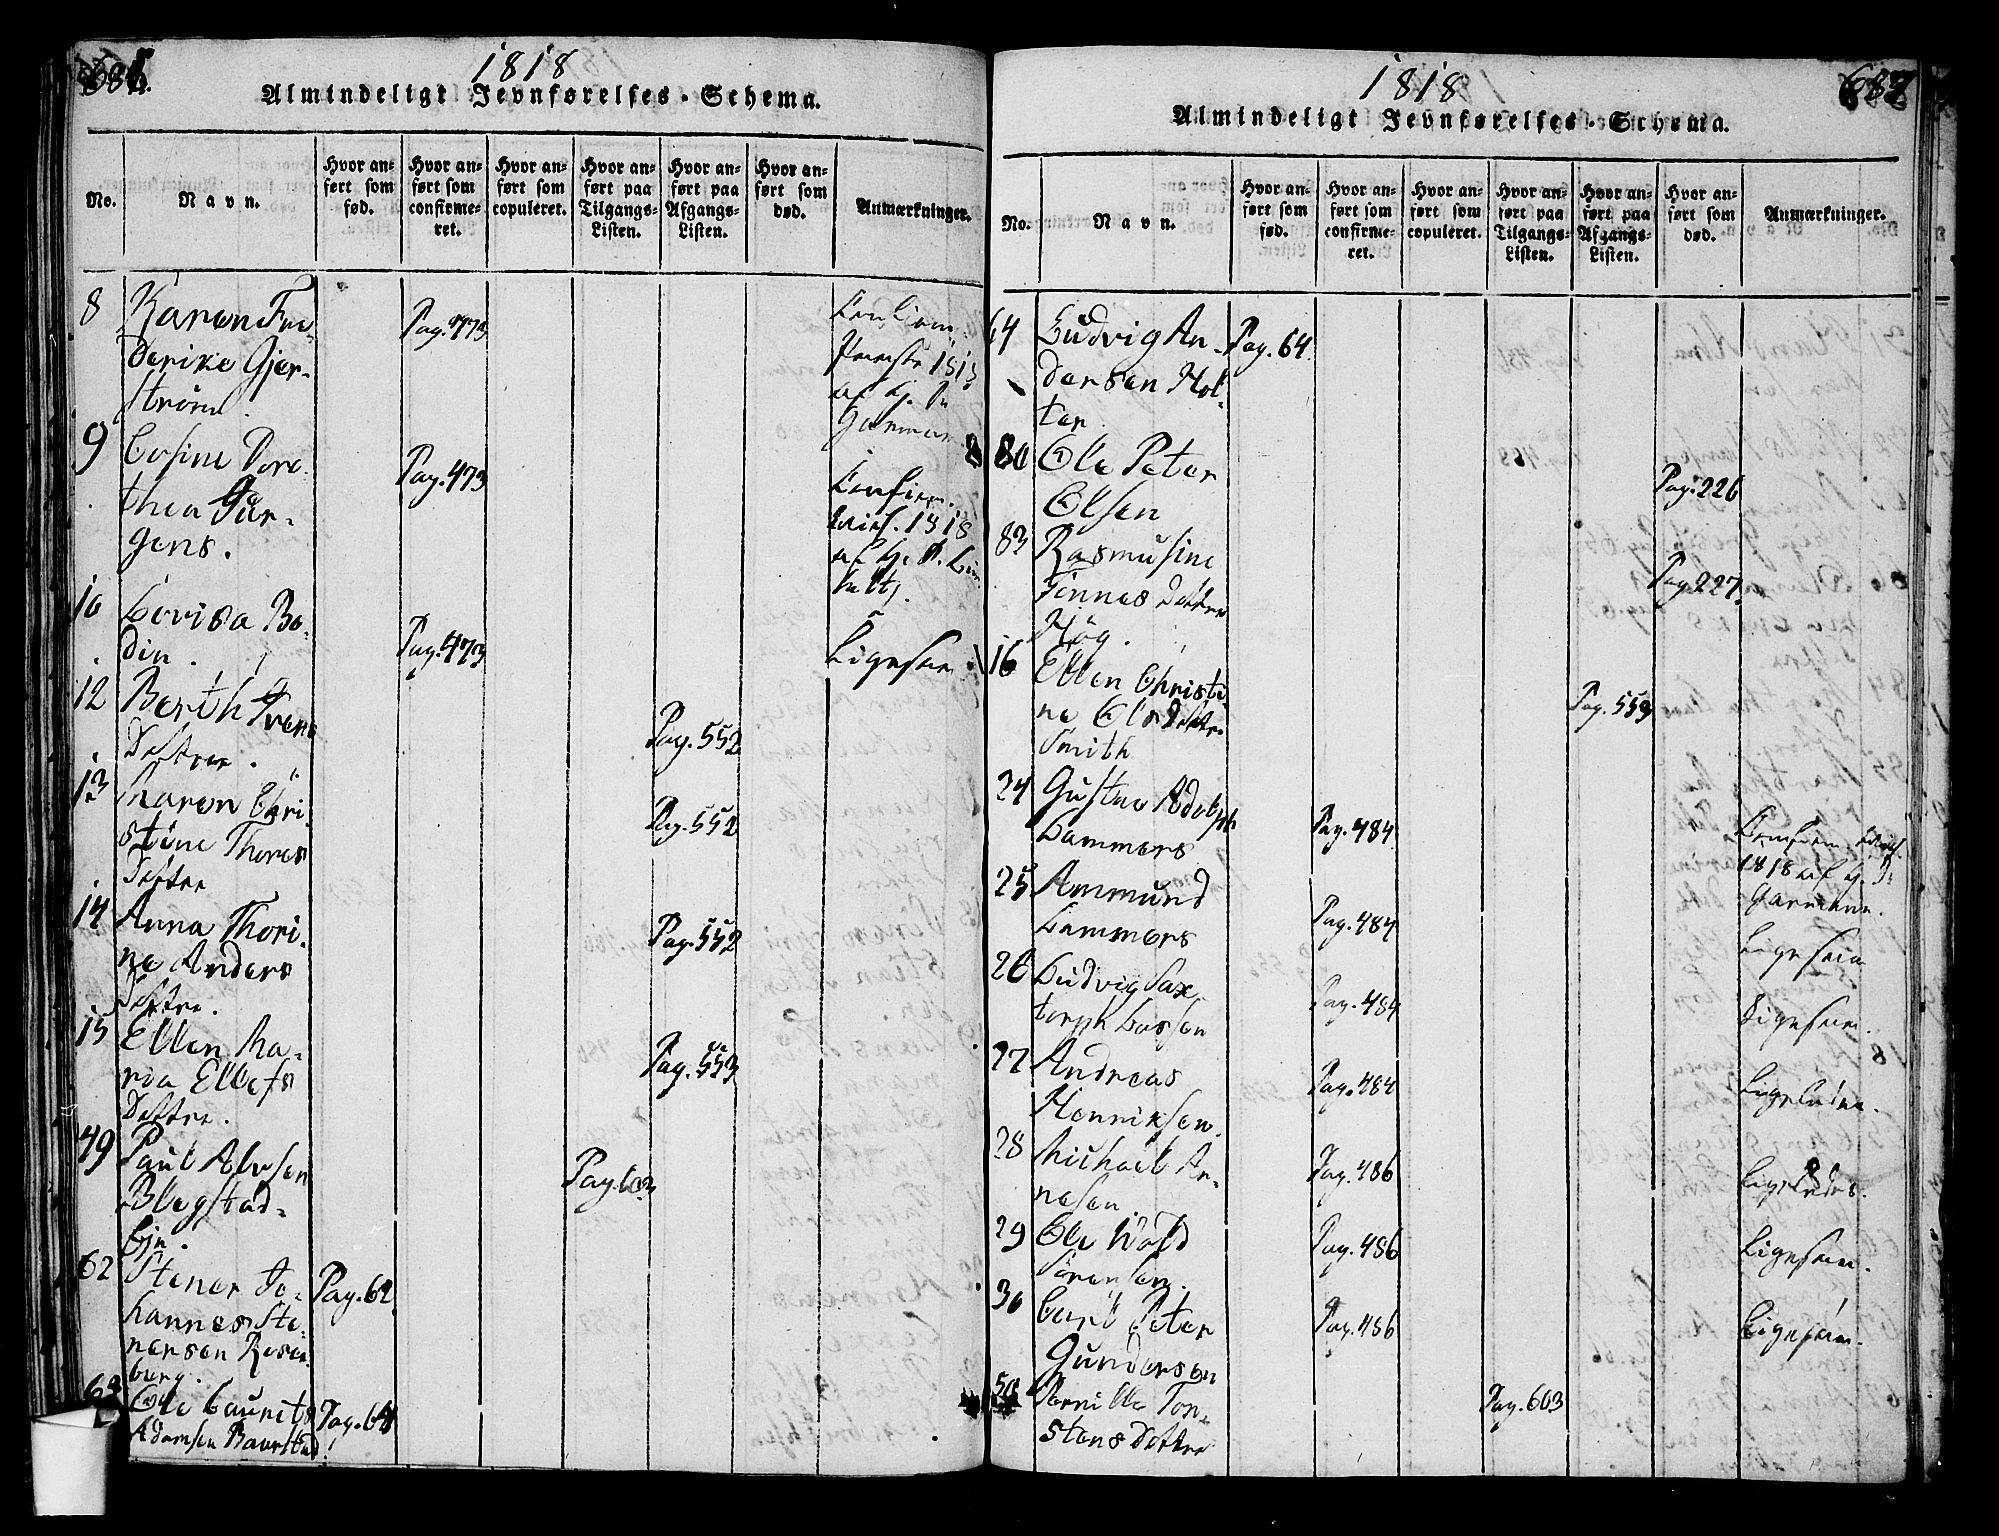 1818
Almindeligt Jevnførelses-Schema.
No.
Navn.
Hvor an-
ført som
fød.
Hvor an-
ført som
confirme-
ret.
Hvor an-
ført som
copuleret.
Hvor an-
ført paa
Tilgangs-
Listen.
Hvor an-
ført paa
Afgangs-
Listen.
Hvor an-
ført som
død.
Anmærkninger.
8 Karen Fre
derike Gjer-
ström. Pag. 473
9 Cosine Doro
thea Jür-
gens. Pag. 473
1818
10 Lovisa Bo-
din. Pag. 473 Ligesaa
12 Berth Svens
Datter. Pag. 552
13 Maren Chri
stine Thores
Datter Pag. 552
14 Anna Thori-
ne Anders
Datter. Pag. 552
15 Ellen Ma-
ria Ellefs
Datter. Pag. 553
49 Paul Alvsen
Blegstad-
Eje. Pag. 603
62 Stener Jo-
hannes Ste-
nersen Rosen
berg. Pag. 62
63 Ole Laurits
Adamsen Baarstad Pag. 64
1818
687
Almindeligt Jevnførelses-Schema.
No.
Navn.
Hvor an-
ført som
fød.
Hvor an-
ført som
confirme-
ret.
Hvor an-
ført som
copuleret.
Hvor an-
ført paa
Tilgangs-
Listen.
Hvor an-
ført paa
Afgangs-
Listen.
Hvor an-
ført som
død.
Anmærkninger.
64 Ludvig An-
dersen Hol-
ter Pag. 64.
80 Ole Peter
Olsen Pag. 226
83 Rasmusine
Finnes Datter
Høg. Pag. 227.
16 Ellen Christi
ne Ols Datter
Smith Pag. 553
24 Gustav Adolph
Lammers Pag. 484
1818 af Hr. P.
Garmann.
25 Ammund
Lammers Pag. 484 Ligesaa
26 Ludvig Sax
torph Lassen Pag. 484 Ligesaa.
27 Andreas
Henriksen. Pag. 484 Ligeledes.
28 Michael Ar-
nesen Pag. 486 Ligeledes.
29 Ole Wold
Sörensen. Pag. 486 Ligesaa.
30 Carl Peter
Gundersen Pag. 486 Ligesaa.
50 Pernille Tor-
stens Datter Pag. 603